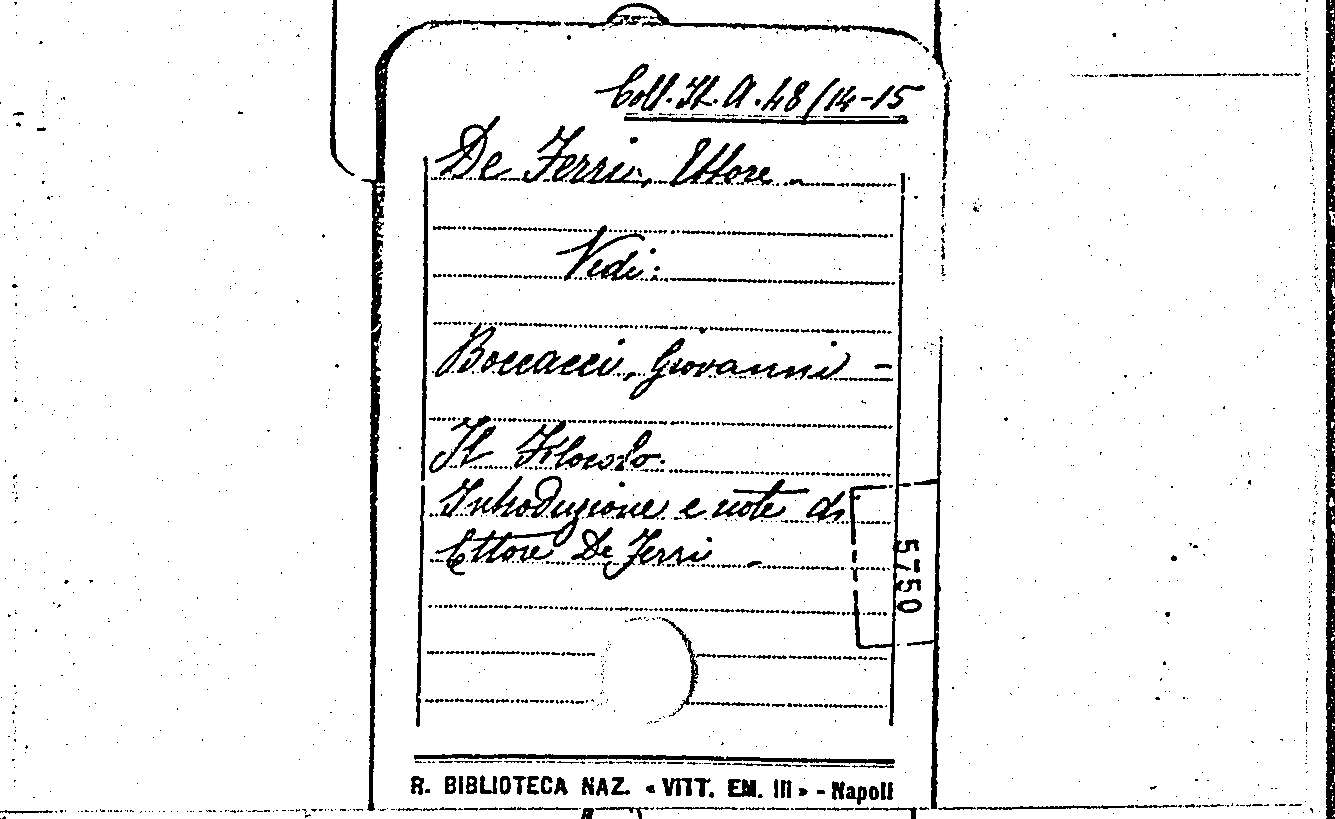 Coll. It. A. 48/14-15
De Ferri, Ettore -
Vedi:
Boccacci, Giovanni -
Il Filocolo.
Introduzione e note di
Ettore De Ferri -
5750
R. BIBLIOTECA NAZ. « VITT. EM. III » - Napoli